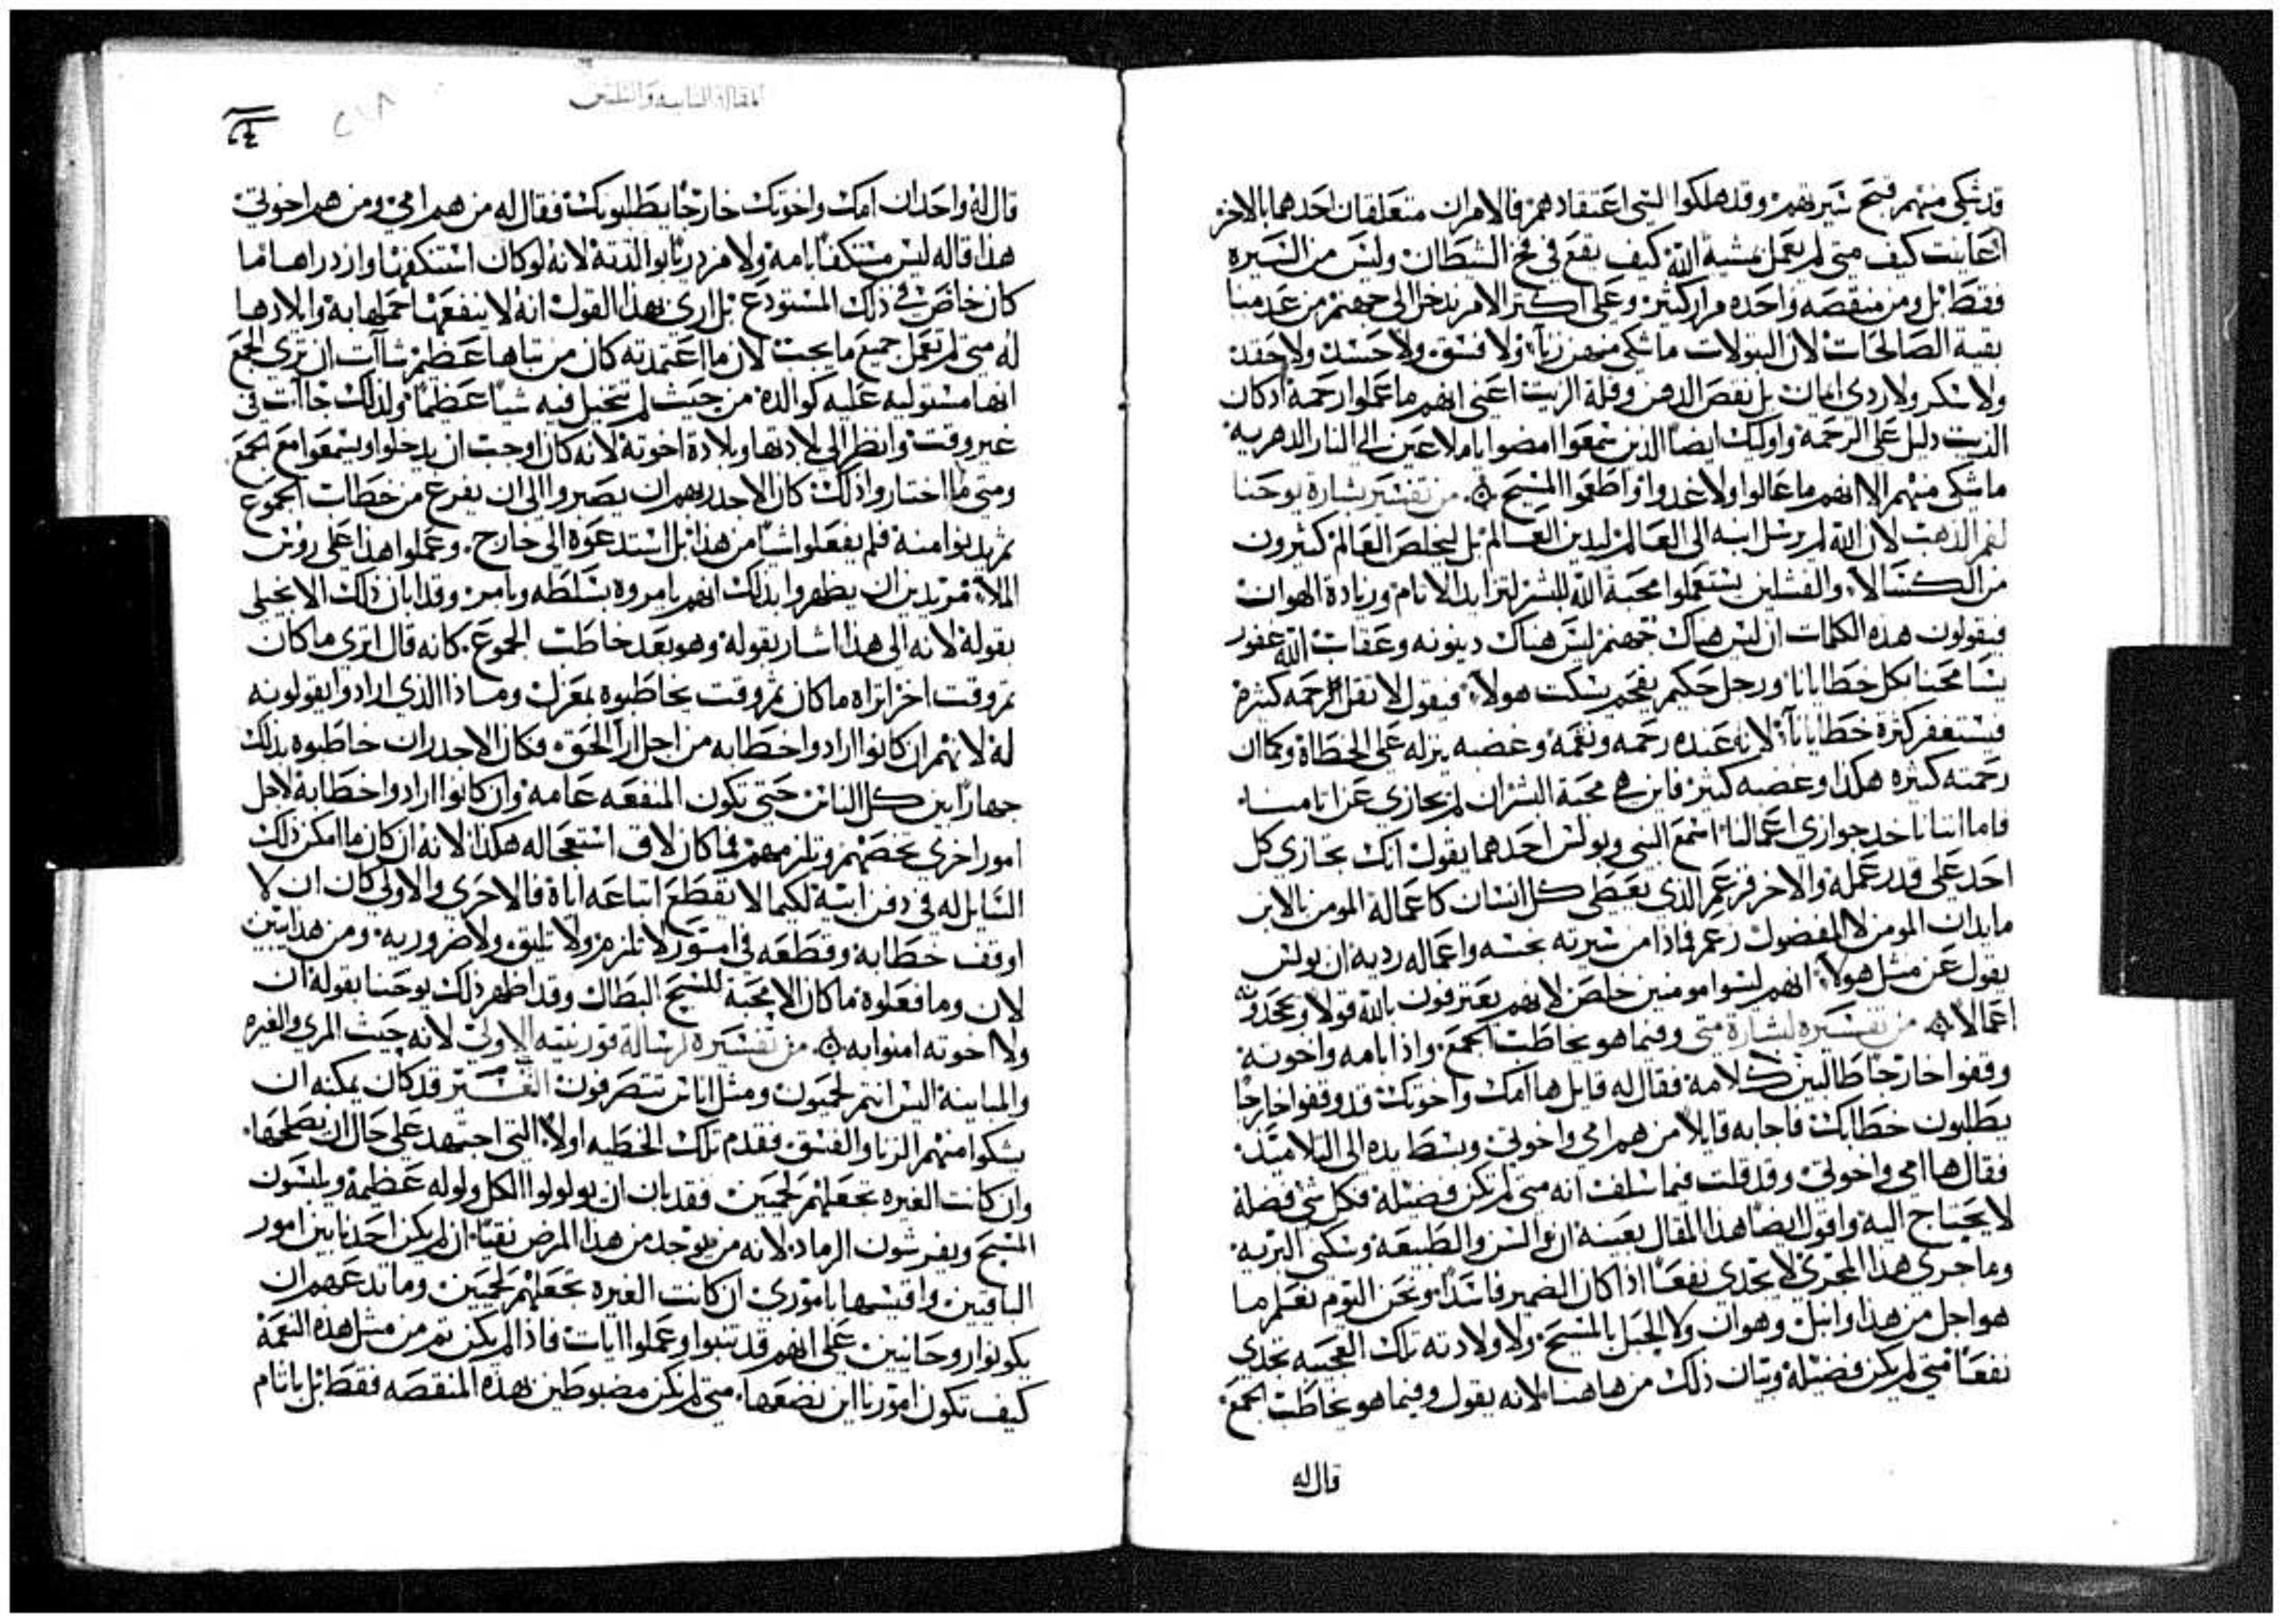 قد شكى منهم قبح سيرتهم وقد هلكوا التي اعتقادهم فالامران متعلقان احدهما بالاخر
اعاينت كيف متى لم نعمل مشية الله كيف نقع في فخ الشيطان وليس من السيره
فقط بل ومن منقصه واحده مرار كثيره وعلى اكثر الامر ندخل الى جهنم من عدمنا
بقية الصالحات لان البتولات ما شكى منهن زنا ولا فسق ولا حسد ولا حقد
ولا سكر ولا ردى امانه بل نقص الدهن وقلة الزيت اعني انهم ما عملوا رحمة اذ كان
الزيت دليل على الرحمة واوليك ايضا الذين سمعوا امضوا يا ملاعين الى النار الدهريه
ما شكى منهم الا انهم ما عالوا ولا غدوا واطعموا المسيح من تفسير بشارة يوحنا
لفم الذهب لان الله لم يرسل ابنه الى العالم ليدين العالم بل ليخلص العالم كثيرون
من الكسالا والفشلين يستعملوا محبة الله للبشر لتزايد الاثام وزيادة الهوان
فيقولون هذه الكلمات ان ليس هناك جهنم ليس هناك دينونه وعقاب الله غفور
يسامحنا بكل خطايانا ورجل حكيم يفحم يسكت هولا فيقول لا تقل الرحمه كثيرة
فيستغفر كثرة خطايانا لانه عنده رحمه ونقمه وغضبه ينزله على الخطاة وكما ان
رحمته كثيره هكذا وغضبه كثير فاين هي محبة البشر ان لم يجازي عن اثامنا
فاما اننا ناخد جوازي اعمالنا اسمع النبي وبولس احدهما يقول انك تجازي كل
احد على قدر عمله والاخر فزعم الذي يعطى كل انسان كاعماله المومن بالابن
ما يدان المومن لا المفضول زعم فماذا من سيرته نجسه واعماله رديه ان بولس
يقول عن مثل هولا انهم ليسوا مومنين خلص لانهم يعترفون بالله قولا ويجحدونه
اعمالا من تفسيره لبشارة متى وفيما هو يخاطب الجمع واذا بامه واخوته
وقفوا خارجا طالبين كلامه فقال له قايل ها امك واخوتك قد وقفوا خارجا
يطلبون خطابك فاجابه قايلا من هم امي واخوتي وبسط يده الى التلاميذ
فقال ها امي واخوتي وقد قلت فيما سلف انه متى لم تكن فضيلة فكل شي فضلة
لا يحتاج اليه واقول ايضا هذا المقال بعينه ان السن والطبيعة وسكنى البرية
وما جرى هذا المجرى لا يجدى نفعا اذا كان الضمير فاسدا ونحن اليوم نعلم ما
هو اجل من هذا وانبل وهو ان ولا الحبل بالمسيح ولا ولادته تلك العجيبه تجدي
نفعا متى لم تكن فضيلة وبيان ذلك من هاهنا لانه يقول وفيما هو يخاطب الجمع
قال له
المقالة الثانية والثلثين
قال له واحد ان امك واخوتك خارجا يطلبونك فقال له من هم امي ومن هم اخوتي
هذا قاله ليس مستنكفا بامه ولا مزدريا بوالدته لانه لو كان استنكفها وازدراها ما
كان خاض في ذلك المستودع بل ارى بهذا القول انه لا ينفعها حملها به وايلادها
له متى لم تعمل جميع ما يجب لان ما اعتمدته كان من تباها عظيم شاات ان ترى الجمع
انها مستوليه عليه كوالدة من حيث لم تتخيل فيه شيا عظيما ولذلك جاات في
غير وقت وانظر الى بلادتها وبلادة اخوته لانه كان اوجب ان يدخلوا ويسمعوا مع الجمع
ومتى ما اختاروا ذلك كان الاجدر بهم ان يصبروا الى ان يفرغ من خطاب الجموع
ثم يدنوا منه فلم يفعلوا شيا من هذا بل استدعوه الى خارج وعملوا هذا على روس
الملا مريدين ان يظهروا بذلك انهم يامروه بسلطه ويامر وقد ابان ذلك الانجيلي
بقوله لانه الى هذا اشار بقوله وهو بعد خاطب الجموع كانه قال اترى ما كان
ثم وقت اخر اتراه ما كان ثم وقت يخاطبوه بمعزل وماذا الذي ارادوا يقولونه
له لانهم ان كانوا ارادوا خطابه من اجل ارا الحق فكان الاجدر ان خاطبوه بذلك
جهارا بين كل الناس حتى تكون المنفعه عامه وان كانوا ارادوا خطابه لاجل
امور اخرى تخصهم وتلزمهم فما كان لاق استعجاله هكذا لانه ان كان ما امكن ذلك
السايل له في دفن ابيه لكيما لا يقطع اتباعه اياه فالاحرى والاولى كان ان لا
اوقف خطابه وقطعه في امور لا تلزم ولا تليق ولا ضروريه ومن هذا يبين
لان وما فعلوه ما كان الا محبة للسبح البطال وقد اظهر ذلك يوحنا بقوله ان
ولا اخوته امنوا به من تفسيره لرسالة قورنتيه الاولى لانه حيث المرى والغيره
والمباينة اليس انتم لحميون ومثل اناس تتصرفون التفسير قد كان يمكنه ان
يشكوا منهم الزنا والفسق فقدم تلك الخطيه اولا التي اجتهد على حال ان يصلحها
وان كانت الغيره تجعلهم لحميين فقد بان ان يولولوا الكل ولوله عظيمة ويلبسون
المسح ويفرشون الرماد لانه من يوجد من هذا المرض نقيا ان لم يكن احدنا بين امور
الباقيين واقيسها بامورى ان كانت الغيره تجعلهم لحميين وما تدعهم ان
يكونوا روحانيين على انهم قد تنبوا وعملوا ايات فاذا لم يكن ثم من مثل هذه النعمة
كيف تكون امورنا اين نضعها متى لم نكن مضبوطين بهذه المنقصه فقط بل باثام